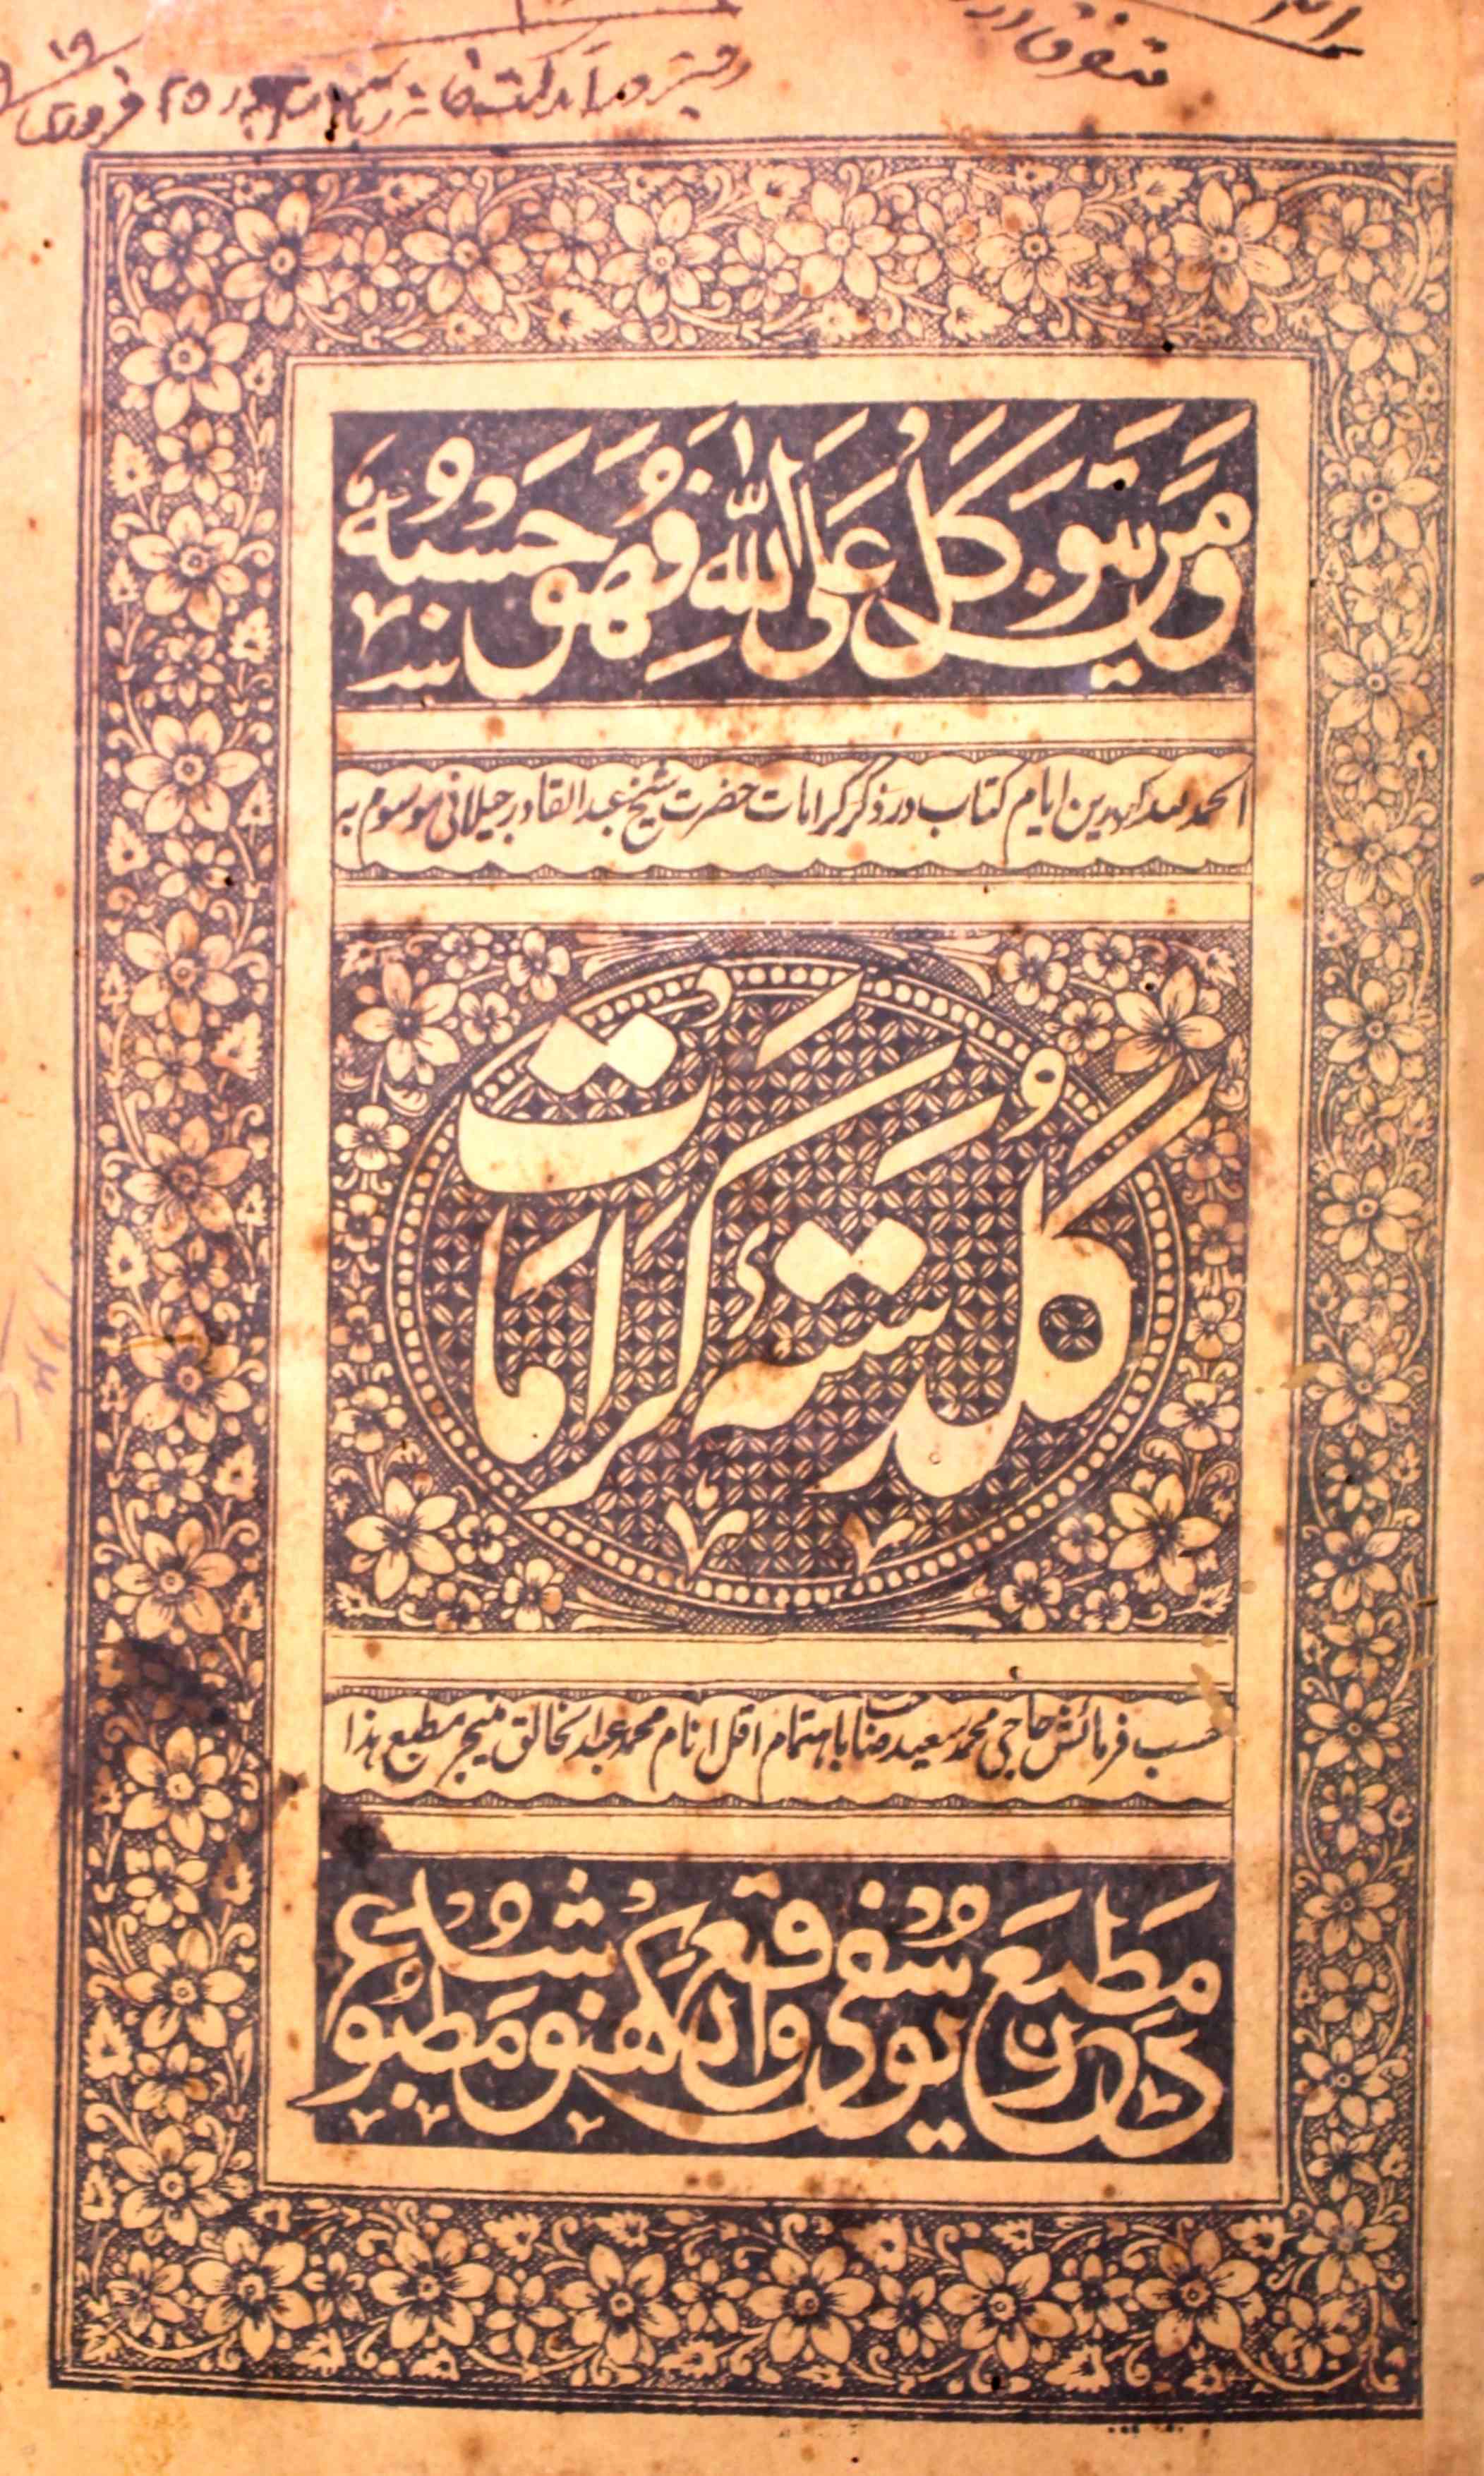 متفرق اردو
وَمَن يَتَوَكَّلْ عَلَى اللّٰهِ فَهُوَ حَسْبُهٗ
الحمد للہ کہ درین ایام کتاب در ذکر کرامات حضرت شیخ عبدالقادر جیلانی موسوم بہ
گلدستۂ کرامات
حسب فرمائش حاجی محمد سعید صاحب باہتمام اقل انام محمد عبدالخالق منیجر مطبع ہذا
در مطبع یوسفی واقع لکھنو مطبوع شد